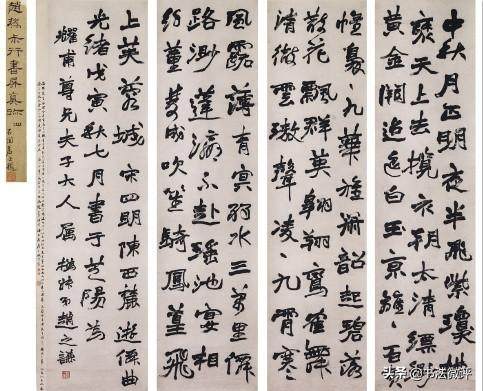 中秋月正明夜半飛紫瓊
天上去攬衣朝太清縹
黃金闕迢迢白玉京旋百
幢裊九華旌簫韶起碧落
散花飄群英翱翔鸞雀舞
清徹雲璈聲凌九霄寒
風露薄青冥弱水三萬里僊
路渺蓬瀛不赴瑤池宴相
約董雙成吹笙騎鳳凰飛
上芙蓉城 宋四明陳西麓遊僊曲
光緒戊寅秋七月書于芝陽為
耀甫尊兄夫子大人屬 撝叔弟趙之謙
趙撝叔行書屏真跡
头条 @书法微评